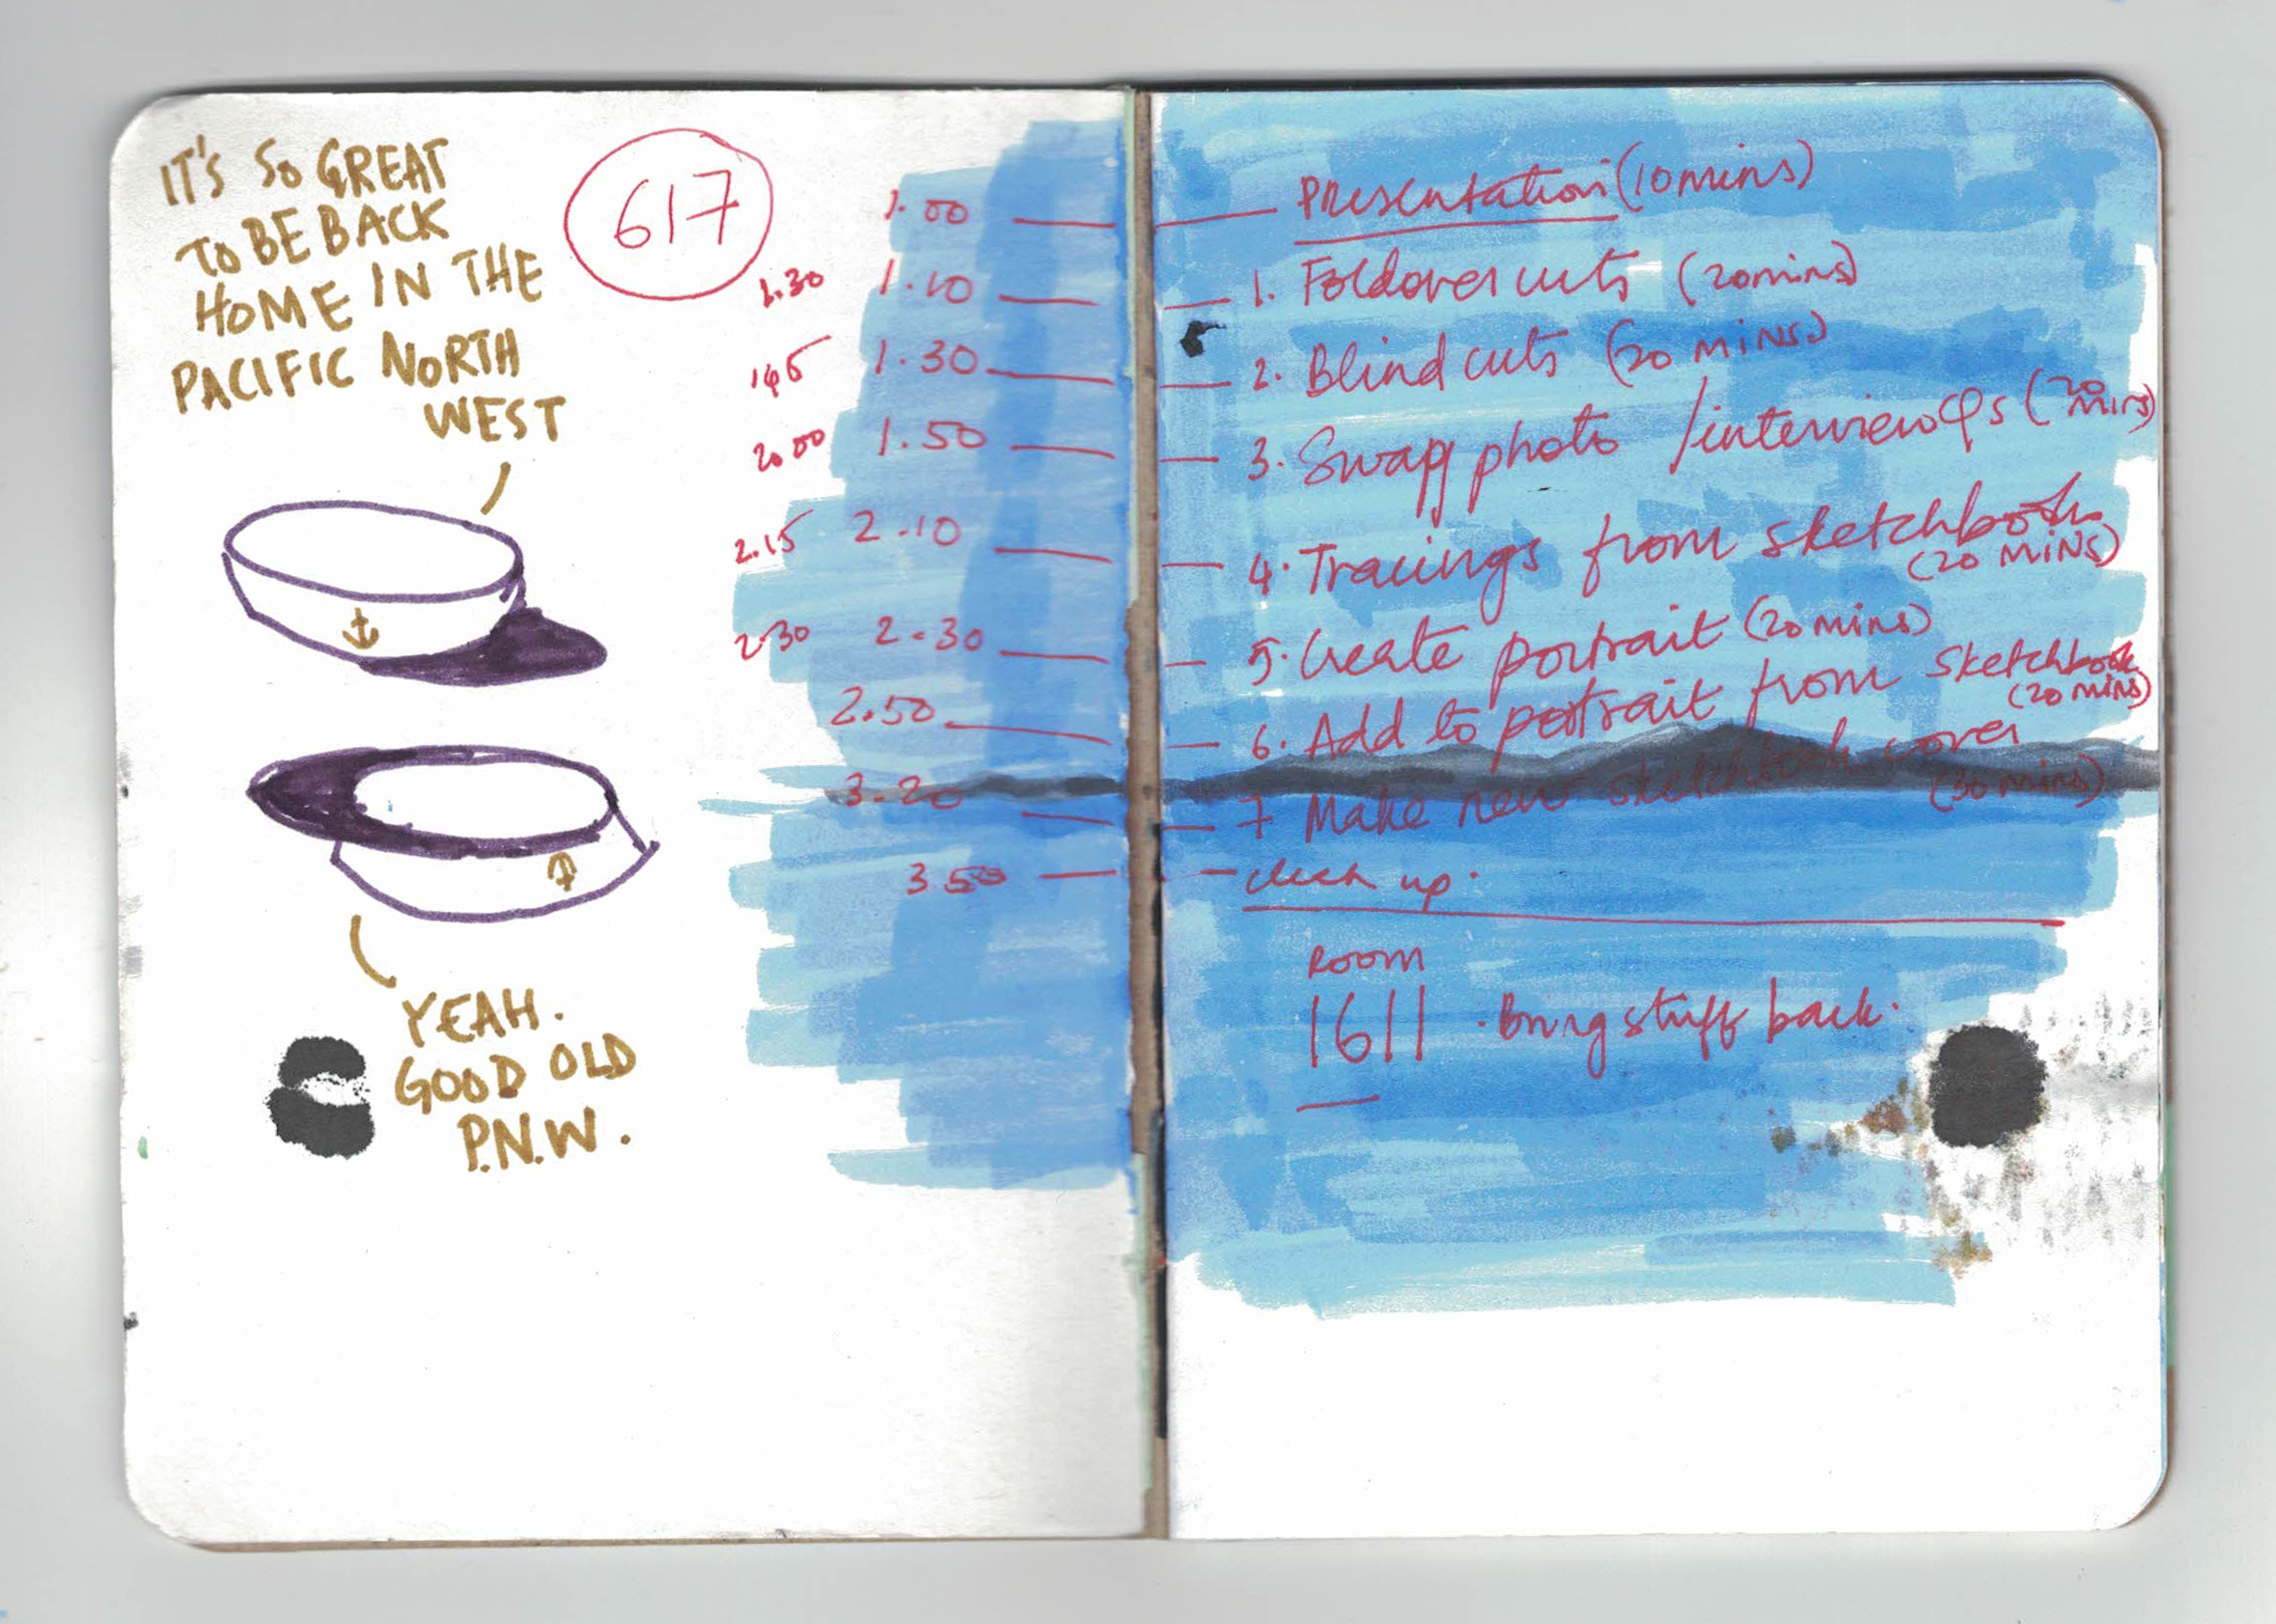 IT'S SO GREAT
TO BE BACK
HOME IN THE
PACIFIC NORTH
WEST
617
YEAH.
GOOD OLD
P.N.W.
1.00 Presentation (10 mins)
1.30 1.10 1. Foldover cuts (20 mins)
145 1.30 2. Blind cuts (20 MINS)
2.00 1.50 3. Swap photo / interview Qs (20 mins)
2.15 2.10 4. Tracings from sketchbook
(20 MINS)
2.30 2.30 5. Create portrait (20 mins)
2.50 6. Add to portrait from sketchbook
(20 mins)
3.20 7 Make new sketchbook cover
(30 mins)
3 50 clean up.
ROOM
1611 · Bring stuff back.